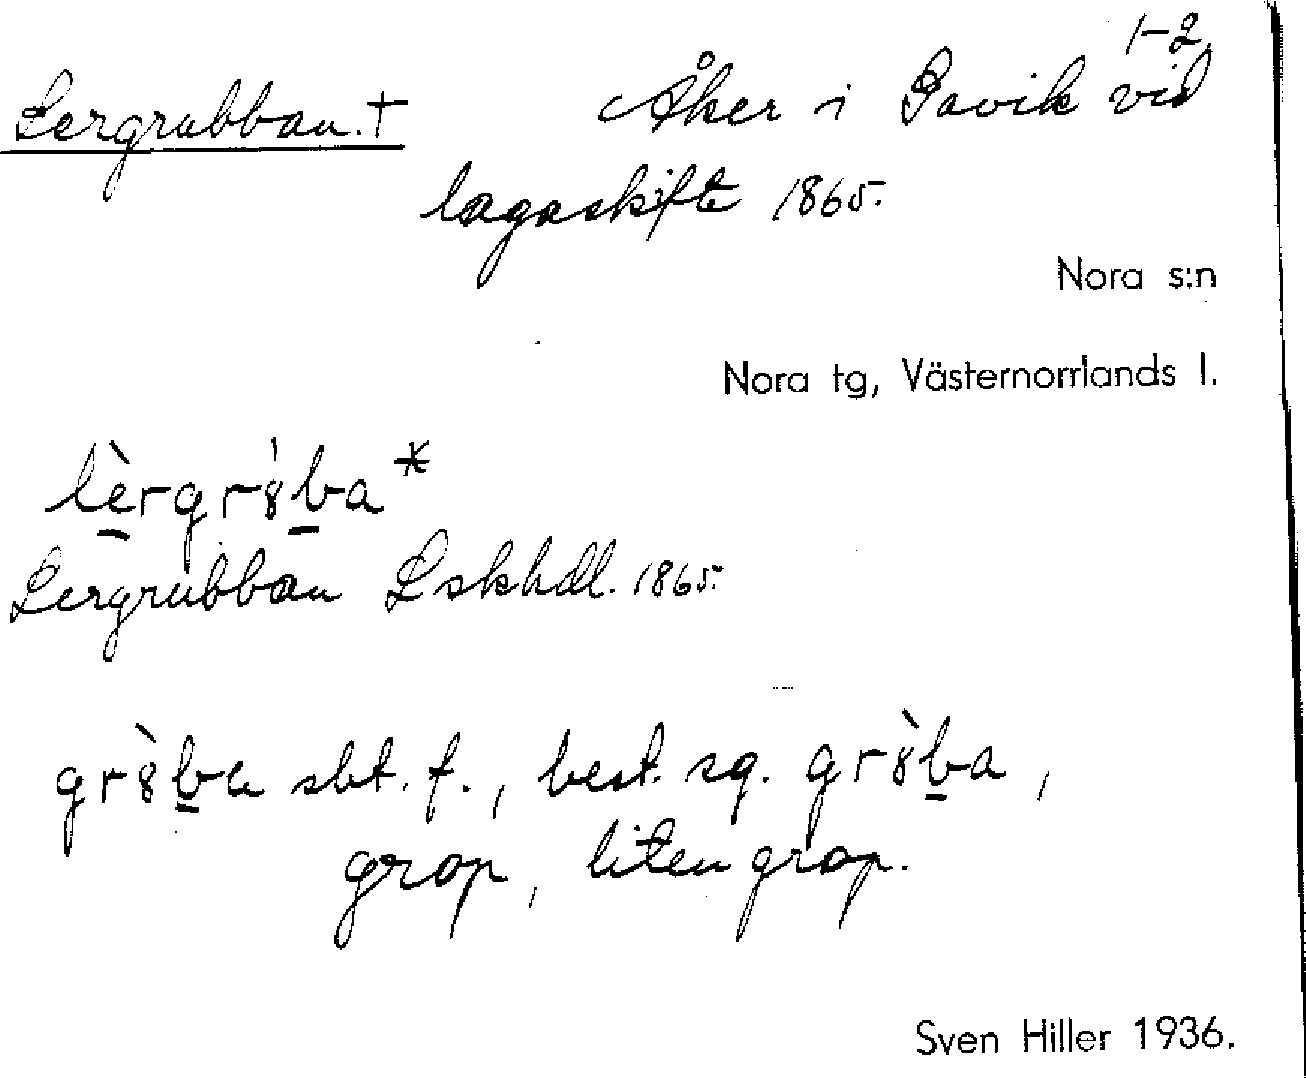 Lergrubban.† Åker i Savik 1-2 vid
lagaskifte 1865.
Nora s:n
Nora tg, Västernorrlands l.
lèrgr8̍ba*
Lergrubban Lskhdl. 1865.
gr8̀ba sbt. f., best. sg. gr8̀ba,
grop, liten grop.
Sven Hiller 1936.